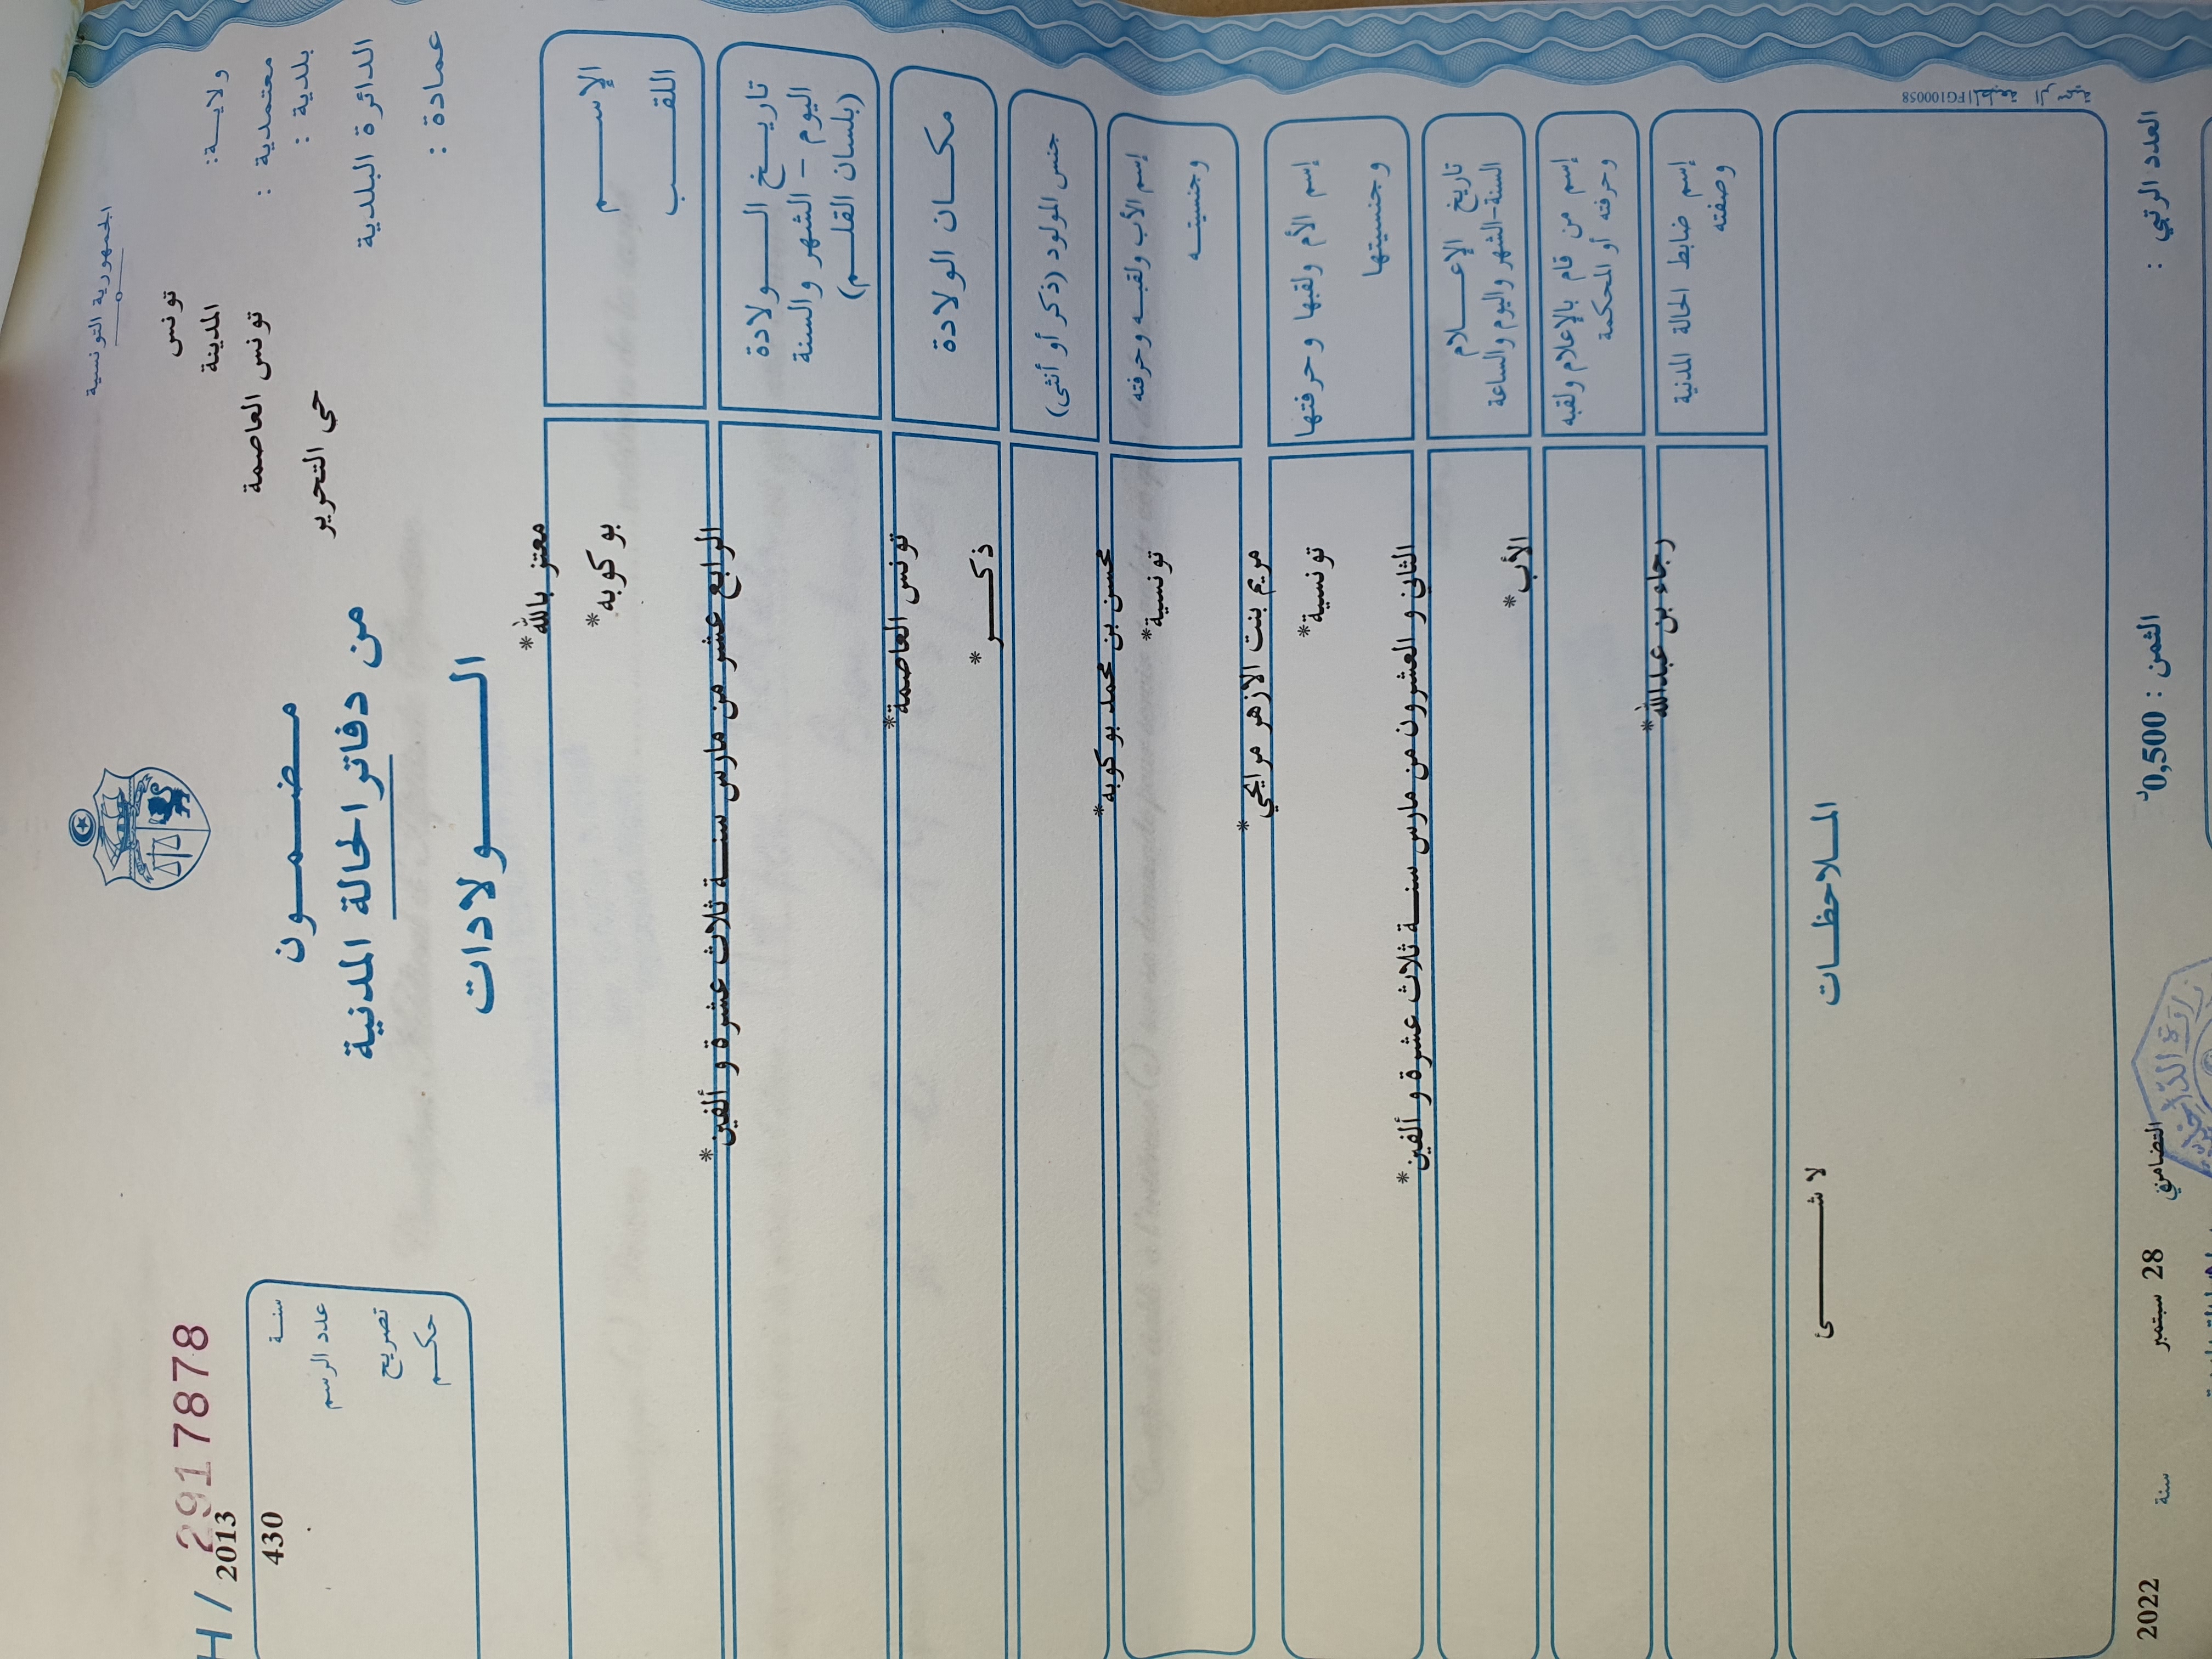 الجمهورية التونسية
H / 2917878
ولاية: تونس
معتمدية : المدينة
بلدية : تونس العاصمة
الدائرة البلدية حي التحرير
عمادة :
سنة 2013
عدد الرسم 430
تصريح
حكم
مضمون
من دفاتر الحالة المدنية
الولادات
الإسم معتز بالله*
اللقب بوكوبه*
تاريخ الولادة
اليوم - الشهر والسنة
(بلسان القلم)
الرابع عشر من مارس سنة ثلاث عشرة و ألفين*
مكان الولادة تونس العاصمة*
جنس المولود (ذكر أو أنثى) ذكر*
إسم الأب ولقبه وحرفته محسن بن محمد بوكوبه*
وجنسيته تونسية*
إسم الأم ولقبها وحرفتها مريم بنت الازهر مرايحي*
وجنسيتها تونسية*
تاريخ الإعلام
السنة-الشهر واليوم والساعة
الثاني و العشرون من مارس سنة ثلاث عشرة و ألفين*
إسم من قام بالإعلام ولقبه
وحرفته أو المحكمة
الأب*
إسم ضابط الحالة المدنية
وصفته
رجاء بن عبدالله*
الملاحظات
لا شئ
FG100058
العدد الرتبي :
الثمن : 0,500د
التضامن 28 سبتمبر سنة 2022